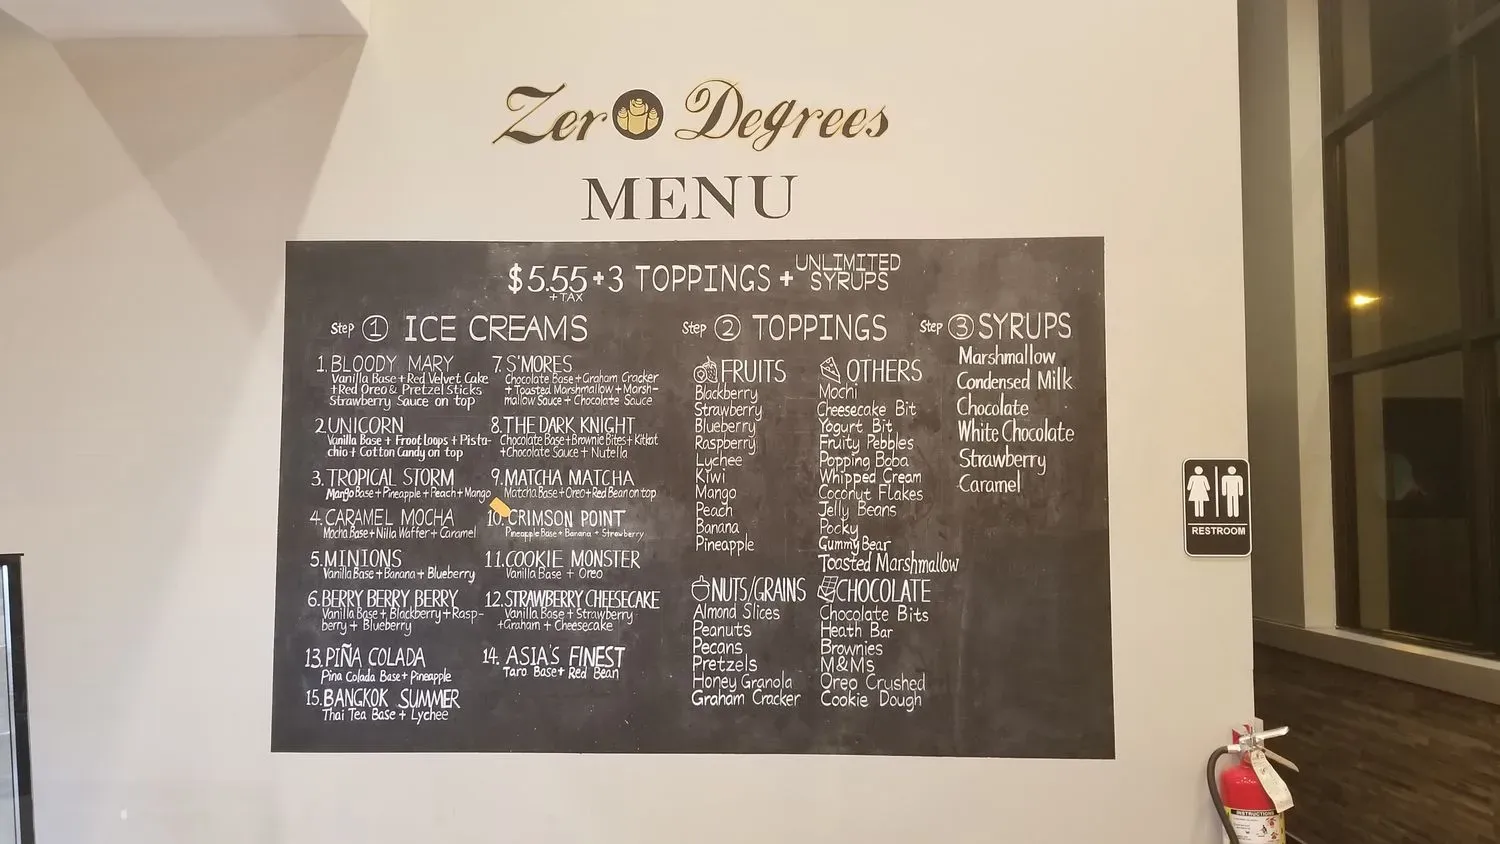 Zero Degrees
MENU
$5.55 + 3 TOPPINGS + UNLIMITED SYRUPS
+ TAX
Step 1 ICE CREAMS
1. BLOODY MARY
Vanilla Base + Red Velvet Cake
+ Red Oreo & Pretzel Sticks
Strawberry Sauce on top
2. UNICORN
Vanilla Base + Froot Loops + Pista-
chio + Cotton Candy on top
3. TROPICAL STORM
Mango Base + Pineapple + Peach + Mango
4. CARAMEL MOCHA
Mocha Base + Nilla Waffer + Caramel
5. MINIONS
Vanilla Base + Banana + Blueberry
6. BERRY BERRY BERRY
Vanilla Base + Blackberry + Rasp-
berry + Blueberry
13. PIÑA COLADA
Pina Colada Base + Pineapple
15. BANGKOK SUMMER
Thai Tea Base + Lychee
7. S'MORES
Chocolate Base + Graham Cracker
+ Toasted Marshmallow + Marsh-
mallow Sauce + Chocolate Sauce
8. THE DARK KNIGHT
Chocolate Base + Brownie Bites + Kitkat
+ Chocolate Sauce + Nutella
9. MATCHA MATCHA
Matcha Base + Oreo + Red Bean on top
10. CRIMSON POINT
Pineapple Base + Banana + Strawberry
11. COOKIE MONSTER
Vanilla Base + Oreo
12. STRAWBERRY CHEESECAKE
Vanilla Base + Strawberry
+ Graham + Cheesecake
14. ASIA'S FINEST
Taro Base + Red Bean
Step 2 TOPPINGS
FRUITS
Blackberry
Strawberry
Blueberry
Raspberry
Lychee
Kiwi
Mango
Peach
Banana
Pineapple
NUTS/GRAINS
Almond Slices
Peanuts
Pecans
Pretzels
Honey Granola
Graham Cracker
OTHERS
Mochi
Cheesecake Bit
Yogurt Bit
Fruity Pebbles
Popping Boba
Whipped Cream
Coconut Flakes
Jelly Beans
Pocky
Gummy Bear
Toasted Marshmallow
CHOCOLATE
Chocolate Bits
Heath Bar
Brownies
M&Ms
Oreo Crushed
Cookie Dough
Step 3 SYRUPS
Marshmallow
Condensed Milk
Chocolate
White Chocolate
Strawberry
Caramel
RESTROOM
INSTRUCTIONS